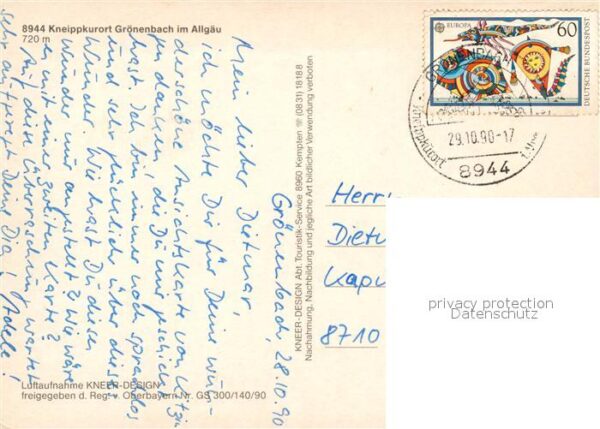 8944 Kneippkurort Grönenbach im Allgäu
720 m
Grönenbach, 28.10.90
Mein lieber Dietmar,
ich möchte Dir für Deine wun-
derschöne Ansichtskarte von
danken, die Du mir geschickt
hast. Ich bin immer noch sprachlos
und sehr glücklich über dieses
Wunder. Wie hast Du dieses
Wunder nur angestellt? Wie wäre
es mit einer zweiten Karte?
Auf eine Überraschung wartet
Deine Dia! Adele!
Luftaufnahme KNEER-DESIGN
freigegeben d. Reg. v. Oberbayern Nr. GS 300/140/90
KNEER-DESIGN Abt. Touristik-Service 8960 Kempten ☏ (0831) 18188
Nachahmung, Nachbildung und jegliche Art bildlicher Verwendung verboten
EUROPA
60
DEUTSCHE BUNDESPOST
GRÖNENBACH
Kneippkurort
29.10.90-17
8944
Herrn
Dietm
Kapu
8710
privacy protection
Datenschutz